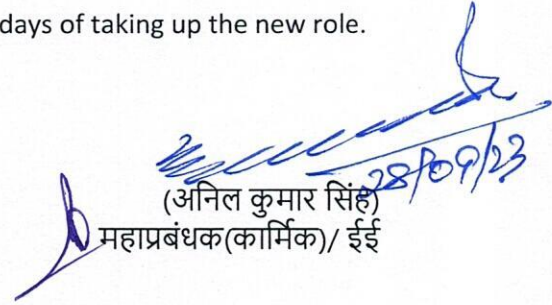 days of taking up the new role.
28/09/23
(अनिल कुमार सिंह)
महाप्रबंधक(कार्मिक)/ ईई